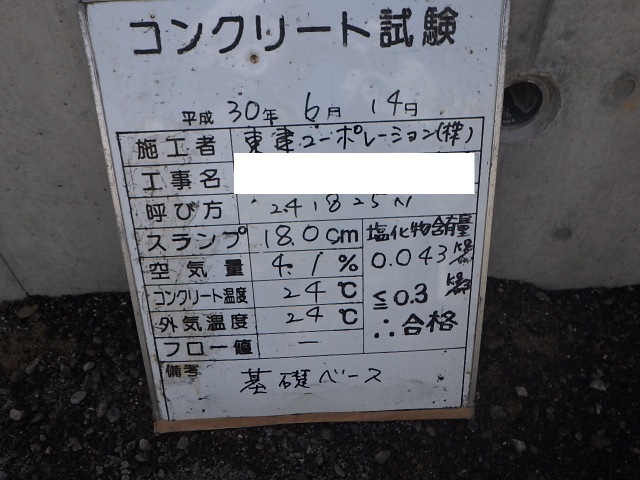 コンクリート試験
平成 30年 6月 14日
施工者 東建コーポレーション(株)
工事名
呼び方 24 18 25 N
スランプ 18.0cm
空気量 4.1%
コンクリート温度 24℃
外気温度 24℃
フロー値 —
塩化物含有量
0.043 kg/m3
≦0.3 kg/m3
∴合格
備考
基礎ベース